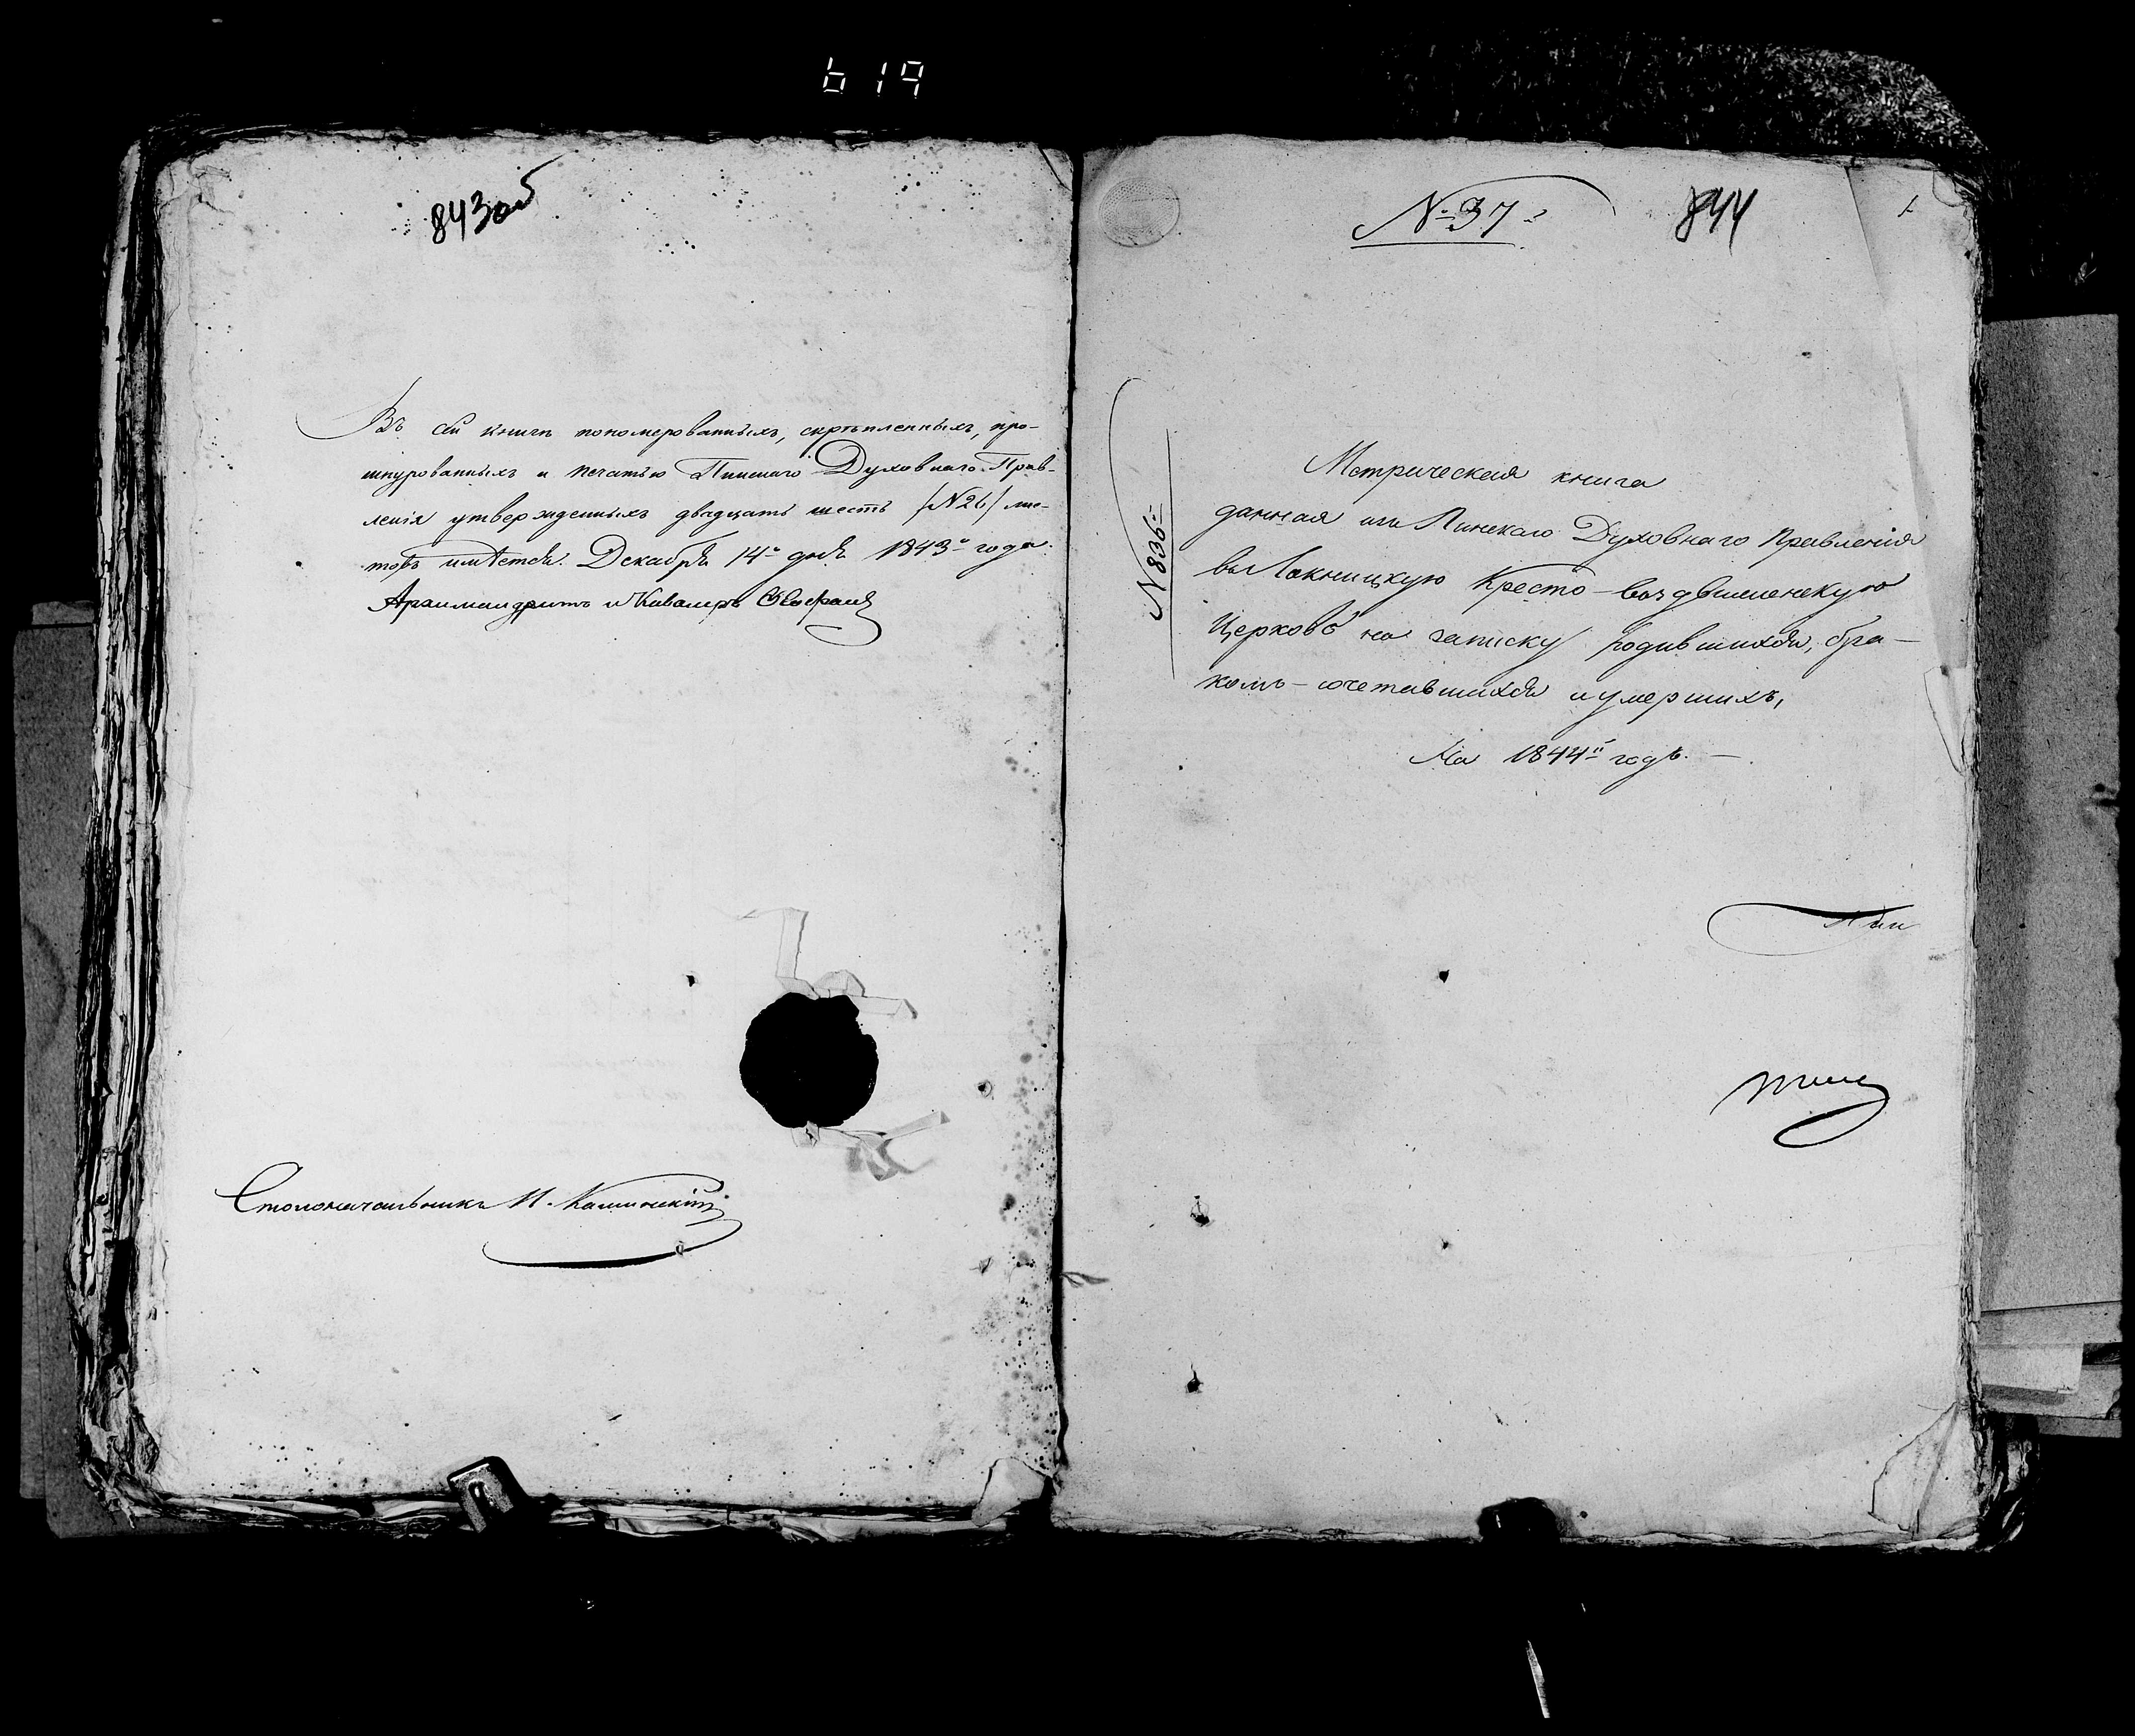 619
843 об
Въ сей книгѣ пономерованныхъ, скрѣпленныхъ, про-
шнурованныхъ и печатью Пинскаго Духовнаго Прав-
ленія утвержденныхъ двадцать шесть /N 26/ лис-
товъ имѣется. Декабря 14го дня 1843го года.
Архимандритъ и Кавалеръ
Столоначальникъ И.
№ 37й
844
1
N 836
Метрическая книга
данная изъ Пинскаго Духовнаго Правленія
въ Локницкую Кресто-воздвиженскую
Церковь на записку родившихся, бра-
комъ-сочетавшихся и умершихъ,
На 1844й годъ.